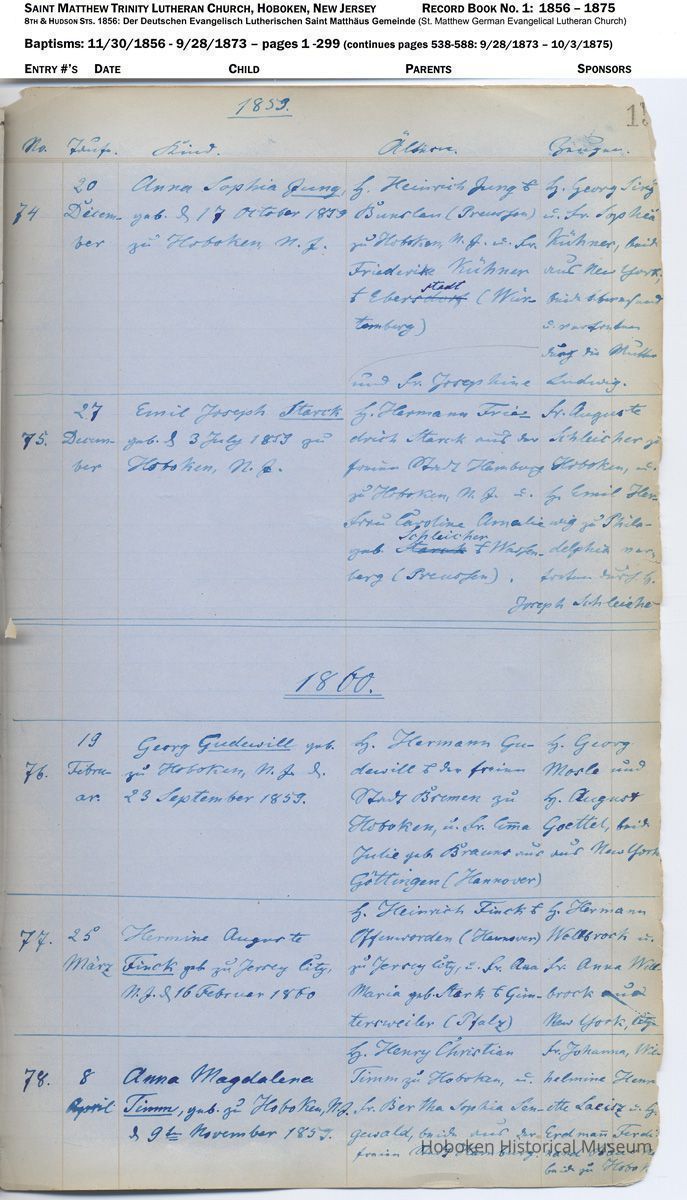 SAINT MATTHEW TRINITY LUTHERAN CHURCH, HOBOKEN, NEW JERSEY RECORD BOOK NO. 1: 1856 – 1875
8TH & HUDSON STS. 1856: Der Deutschen Evangelisch Lutherischen Saint Matthäus Gemeinde (St. Matthew German Evangelical Lutheran Church)
Baptisms: 11/30/1856 - 9/28/1873 – pages 1 -299 (continues pages 538-588: 9/28/1873 – 10/3/1875)
ENTRY #'S DATE CHILD PARENTS SPONSORS
1859.
No. Taufe. Kind. Ältern. Zeugen.
74
20
Decem-
ber
Anna Sophia Jung,
geb. d. 17 October 1859
zu Hoboken, N. J.
H. Heinrich Jung
Bunzlau (Preussen)
zu Hoboken, N. J. u. Fr.
Friederike Kühner
Ebersdorf stadt (Wür-
temberg)
H. Georg
u. Fr. Sophia
Kühner, beide
aus New York,
durch die Mutter
und Fr. Josephine Ludwig.
75.
27
Decem-
ber
Emil Joseph Starck
geb. d. 3 July 1859 zu
Hoboken, N. J.
H. Hermann Frie-
drich Starck aus der
freien Stadt Hamburg
zu Hoboken, N. J. u.
Frau Caroline Amalie
geb. Starck Schleicher
berg (Preussen).
Fr. Auguste
Schleicher zu
Hoboken, u.
H. Emil Her-
wig zu Phila-
delphia ver-
treten durch H.
Joseph Schleicher
1860.
76.
19
Febru-
ar.
Georg Gudewill geb.
zu Hoboken, N. J. d.
23 September 1859.
H. Hermann Gu-
dewill der freien
Stadt Bremen zu
Hoboken, u. Fr. Emma
Julie geb. Brauns aus
Göttingen (Hannover)
H. Georg
Mosle und
H. August
Goettel, beide
aus New York
77.
25
März
Hermine Auguste
Finck geb. zu Jersey City,
N. J. d. 16 Februar 1860
H. Heinrich Finck
Offenwarden (Hannover)
zu Jersey City, u. Fr. Ana
Maria geb. Stark Gim-
tersweiler (Pfalz)
H. Hermann
Wallbrock u.
Fr. Anna Wall-
brock aus
New York, City
78.
8
April
Anna Magdalena
Timm, geb. zu Hoboken, N. J.
d. 9ten November 1859.
H. Henry Christian
Timm zu Hoboken, u.
Fr. Bertha Sophia Sen-
gewald, beide aus der
freien Stadt Hamburg.
Fr. Johanna, Wil-
helmine Henri-
ette Laeisz u. H.
Erdmann Ferdi-
beide zu Hoboken
Hoboken Historical Museum